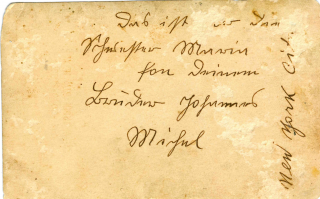 Das ist der
Schwester Maria
fon deinem
Bruder Johannes
Michel
New York Cit.